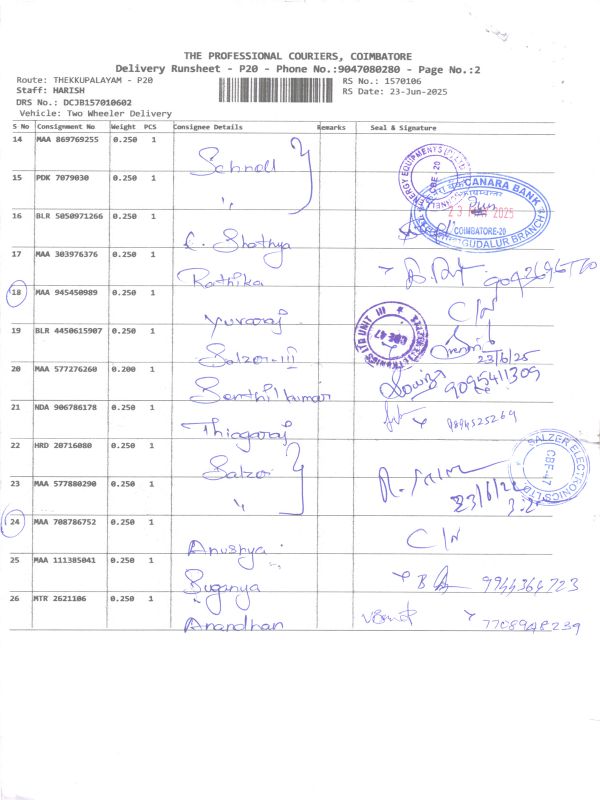 THE PROFESSIONAL COURIERS, COIMBATORE
Delivery Runsheet - P20 - Phone No.:9047080280 - Page No.:2
Route: THEKKUPALAYAM - P20 RS No.: 1570106
Staff: HARISH RS Date: 23-Jun-2025
DRS No.: DCJB157010602
Vehicle: Two Wheeler Delivery
S No Consignment No Weight PCS Consignee Details Remarks Seal & Signature
14 MAA 869769255 0.250 1
15 PDK 7079030 0.250 1 "
CANARA BANK
2025
COIMBATORE-20
GUDALUR BRANCH
16 BLR 5050971266 0.250 1 Shathya
17 MAA 303976376 0.250 1 Rathika
18 MAA 945450989 0.250 1 Yuvaraj C/N
19 BLR 4450615907 0.250 1 Salzer-III 23/6/25
20 MAA 577276260 0.200 1 Senthilkumar 9095411309
21 NDA 906786178 0.250 1 Thiagaraj 9894525269
22 HRD 20716080 0.250 1 Salzer
SALZER ELECTRONICS LTD
CBE-47
23 MAA 577880290 0.250 1 "
24 MAA 708786752 0.250 1 Anushya C/N
25 MAA 111385041 0.250 1 Suganya 9944364723
26 MTR 2621106 0.250 1 Anandhan 7708948239